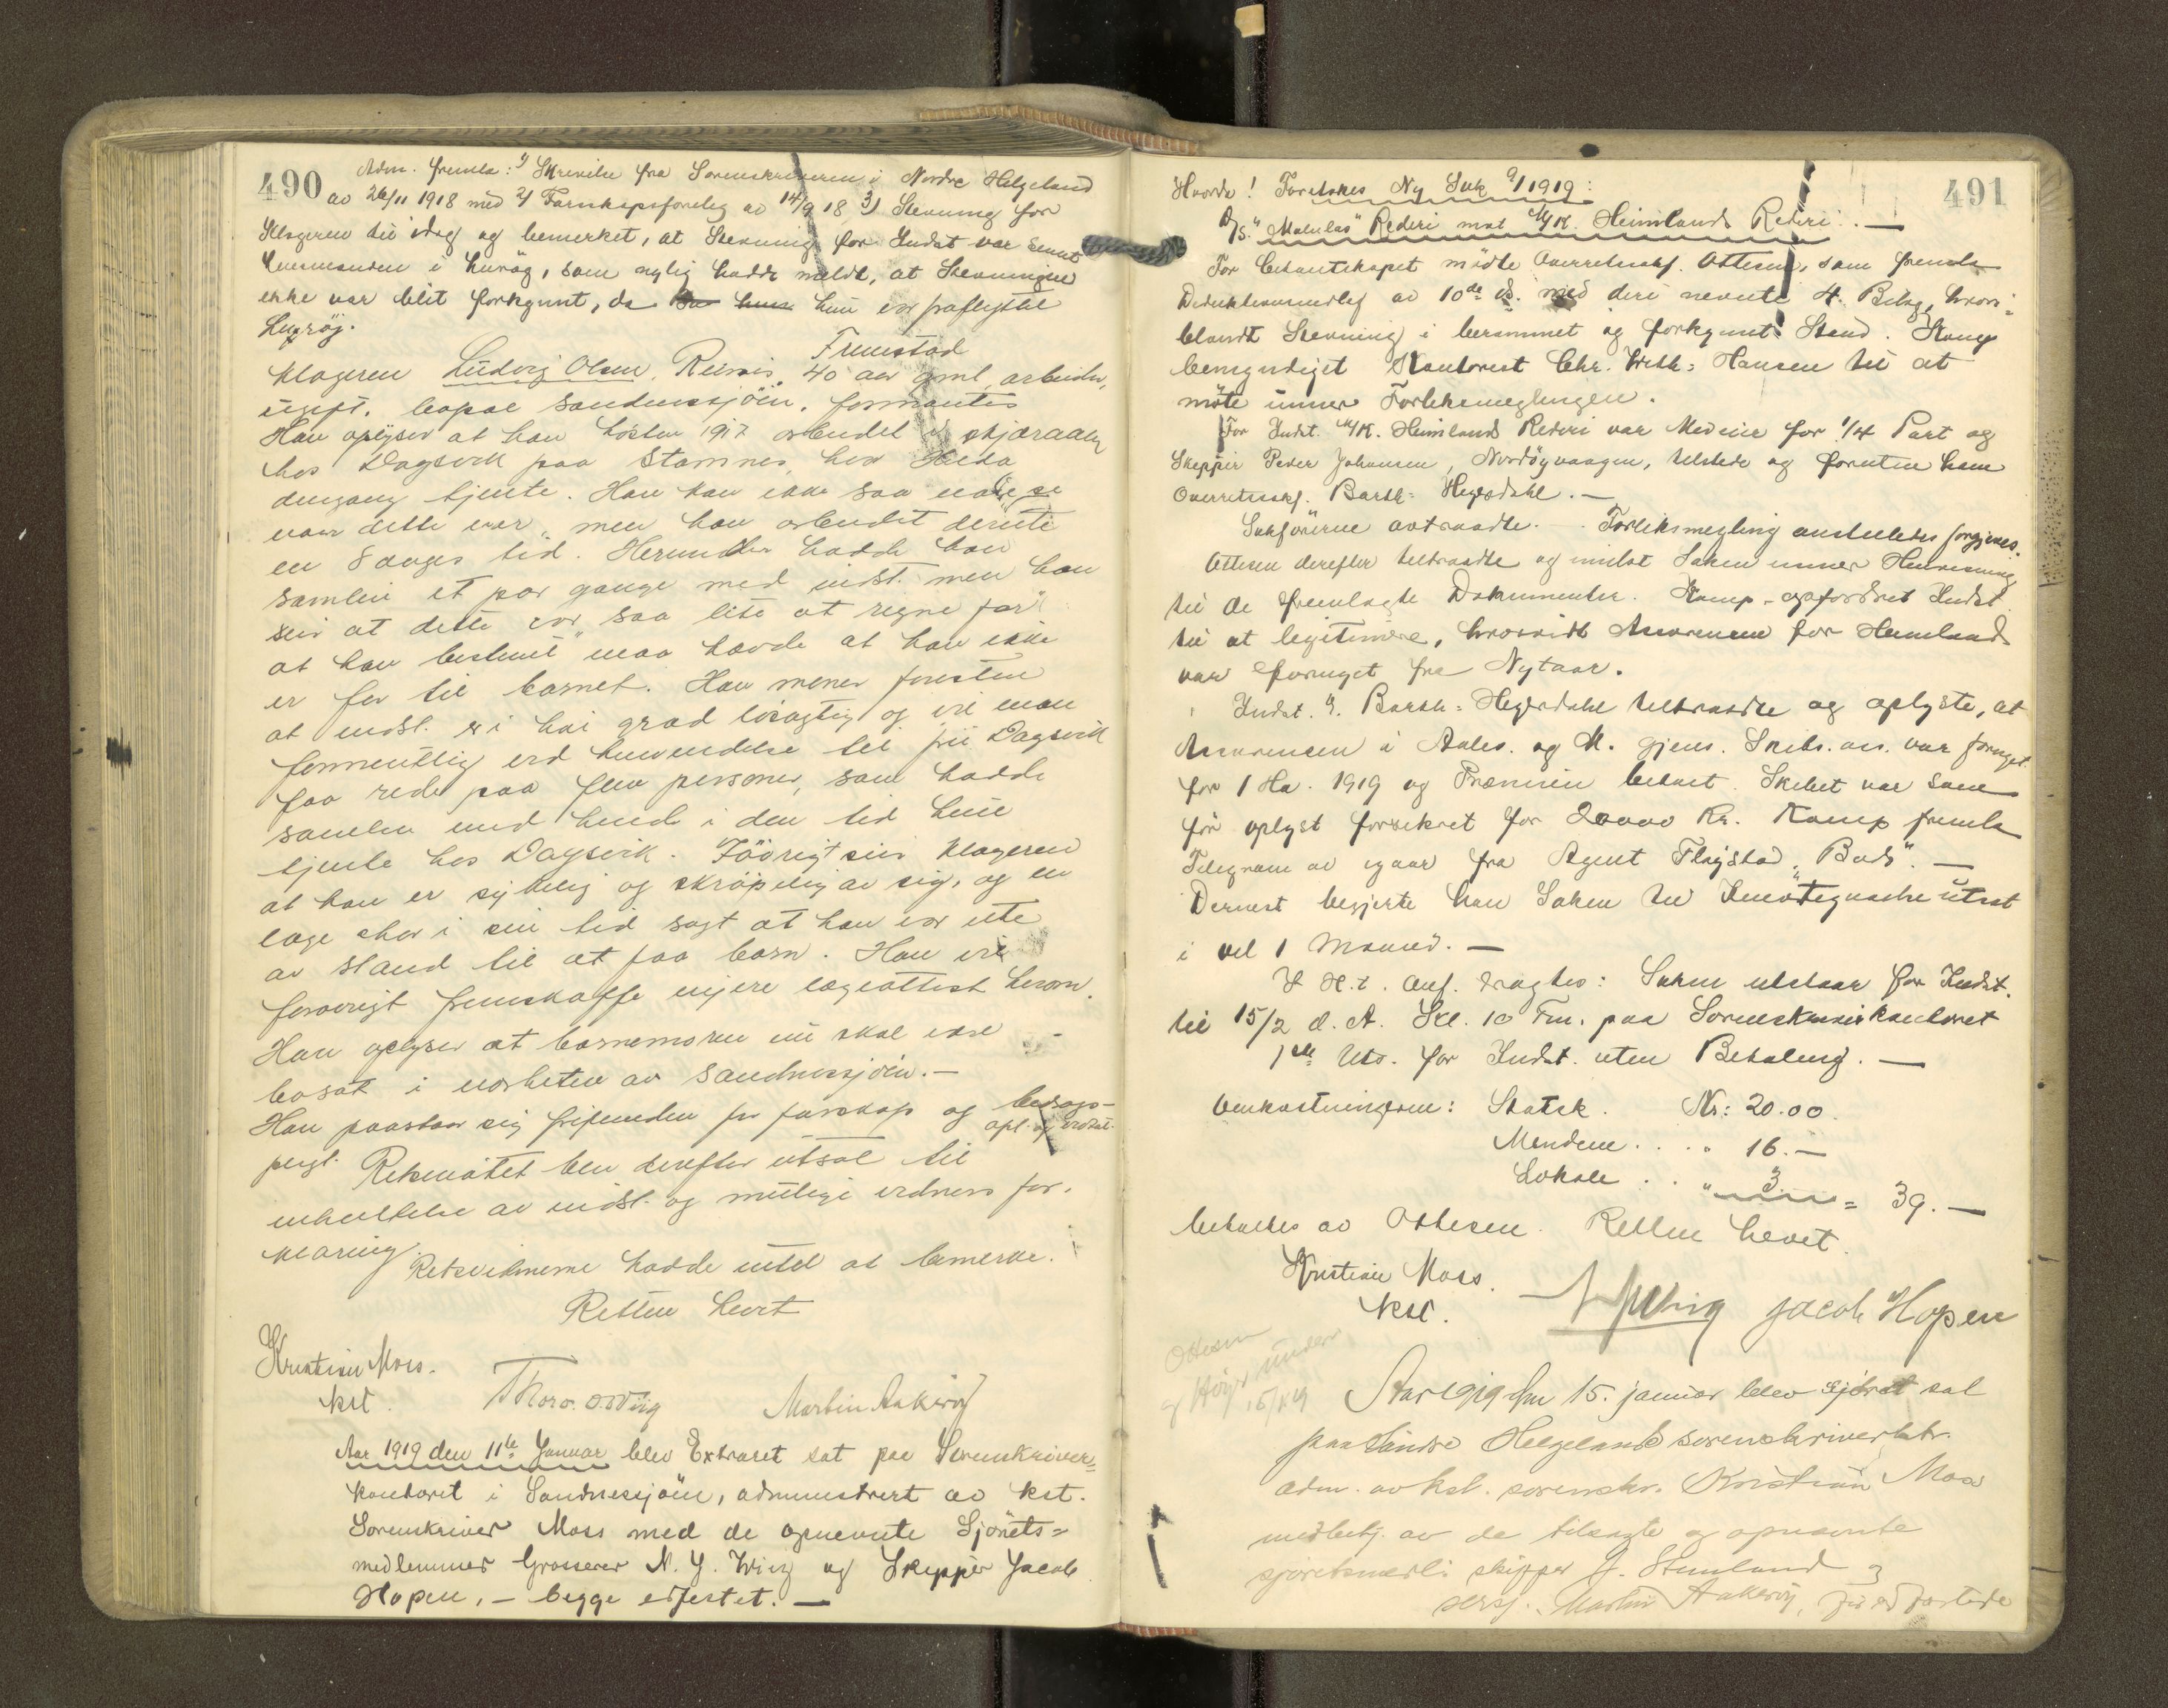 490
Adm. fremla: 1) Skrivelse fra Sorenskriveren i Nordre Helgeland
av 26/11 1918 med 2) Farskapsforelæg av 14/9 18 3) Stevning for
Klageren til idag og bemerket, at Stevning for Indst var sendt
Lensmanden i Lurøy, som nylig hadde meldt, at Stevningen
ikke var blit forkynt, da hun var fraflyttet
Lurøy.
Klageren Ludvig Olsen, Reines, 40 aar gml, arbeider,
ugift, bopæl Sandnessjøen, formantes
Han oplyser at han høsten 1917 arbeidet
hos Dagsvik paa Stamnes, hvor
dengang tjente. Han kan ikke saa nøie si
naar dette var, men han arbeidet derute
en 8 dages tid. Herunder hadde han
samleie et par gange med indst. men han
sier at dette var "saa lite at regne for"
at han bestemt maa hævde at han ikke
er far til barnet. Han mener forresten
at indst. er i høi grad løsagtig og vil man
formentlig ved henvendelse til fru Dagsvik
faa rede paa flere personer, som hadde
samleie med hende i den tid hun
tjente hos Dagsvik. Iøvrigt sier klageren
at han er sykelig og skrøpelig av sig, og en
læge skar i sin tid sagt at han var ute
av stand til at faa barn. Han vil
forøvrigt fremskaffe nyere lægeattest herom.
Han oplyser at barnemoren nu skal være
bosat i nærheten av Sandnessjøen.-
Han paastaar sig frifunden for farskap og bidrags-
pligt.
Retsmøtet blev derefter utsat til
indhentelse av indst. og mulige vidners for-
klaring.
Retsvidnerne hadde intet at bemerke.
Retten hevet
Kristian Moss.
kst.
Thorv. O. Wiig
Martin Aakerøy
Aar 1919 den 11te Januar blev Extraret sat paa Sorenskriver-
kontoret i Sandnessjøen, administrert av kst.
Sorenskriver Moss med de opnevnte Sjørets-
medlemmer Grosserer N. J. Wiig og Skipper Jacob
Hopen, - begge edfestet. -
491
Hvorda! Foretokes Ny Sak 9/1919:
D/S. "Matulas" Rederi mot M/K. Heimlands Rederi. -
For bekantskapet møtte Overretssakf. Ottesen, som fremla
av 10de ds. med deri nevnte 4 Bilag, hvori-
blandt Stevning i berammet og forkynt Stand. Komp
bemyndiget Kontorist Chr. With-Hansen til at
møte under Forliksmeglingen.
For Indst. M/K. Heimlands Rederi var Medeier for 1/4 Part og
Skipper Peder Johansen, Nordøyvaagen, tilstede og foruten ham
Overretssakf. Barth-Hejerdahl. -
Sakførerne avtraadte. - Forliksmegling anstilledes forgjæves.
Ottesen derefter tiltraadte og innlot Saken under Henvisning
til de fremlagte Dokumenter. Komp. opfordret Indst
til at legitimere, hvorvidt Assuransen for Heimland
var fornyet fra Nytaar.
Indst. v. Barth-Hejerdahl tiltraadte og oplyste, at
Assuransen i Aales. og M. gjens. Skibs. ass. var fornyet
for 1 Ha. 1919 og Præmien betalt. Skibet var som
før oplyst forsikret for 20000 Kr. Komp fremla
Telegram av igaar fra Agent Flagstad, "Bodø". -
Dernest begjerte han Saken til Imøtegaaelse utsat
i vel 1 Maaned. -
I H.t. Anf. dragtes: Saken utstaar for Indst.
til 15/2 d. A. Kl. 10 Fm. paa Sorenskriverkontoret
1ste Uts. for Indst. uten Betaling. -
Omkostningerne: Statsk. Kr: 20.00
Mendene . . " 16.-
Lokale . . " 3.- = 39.-
betaltes av Ottesen. Retten hevet.
Kristian Moss.
kst.
Jacob Hopen
Aar 1919 den 15. januar blev sjøret sat
paa Søndre Helgelands sorenskriverktr.
adm. av kst. sorenskr. Kristian Moss
medbetj. av de tilsagte og opnævnte
sjøretsmedl: skipper J. Stenland og
Martin Aakerøy, før edfæstede